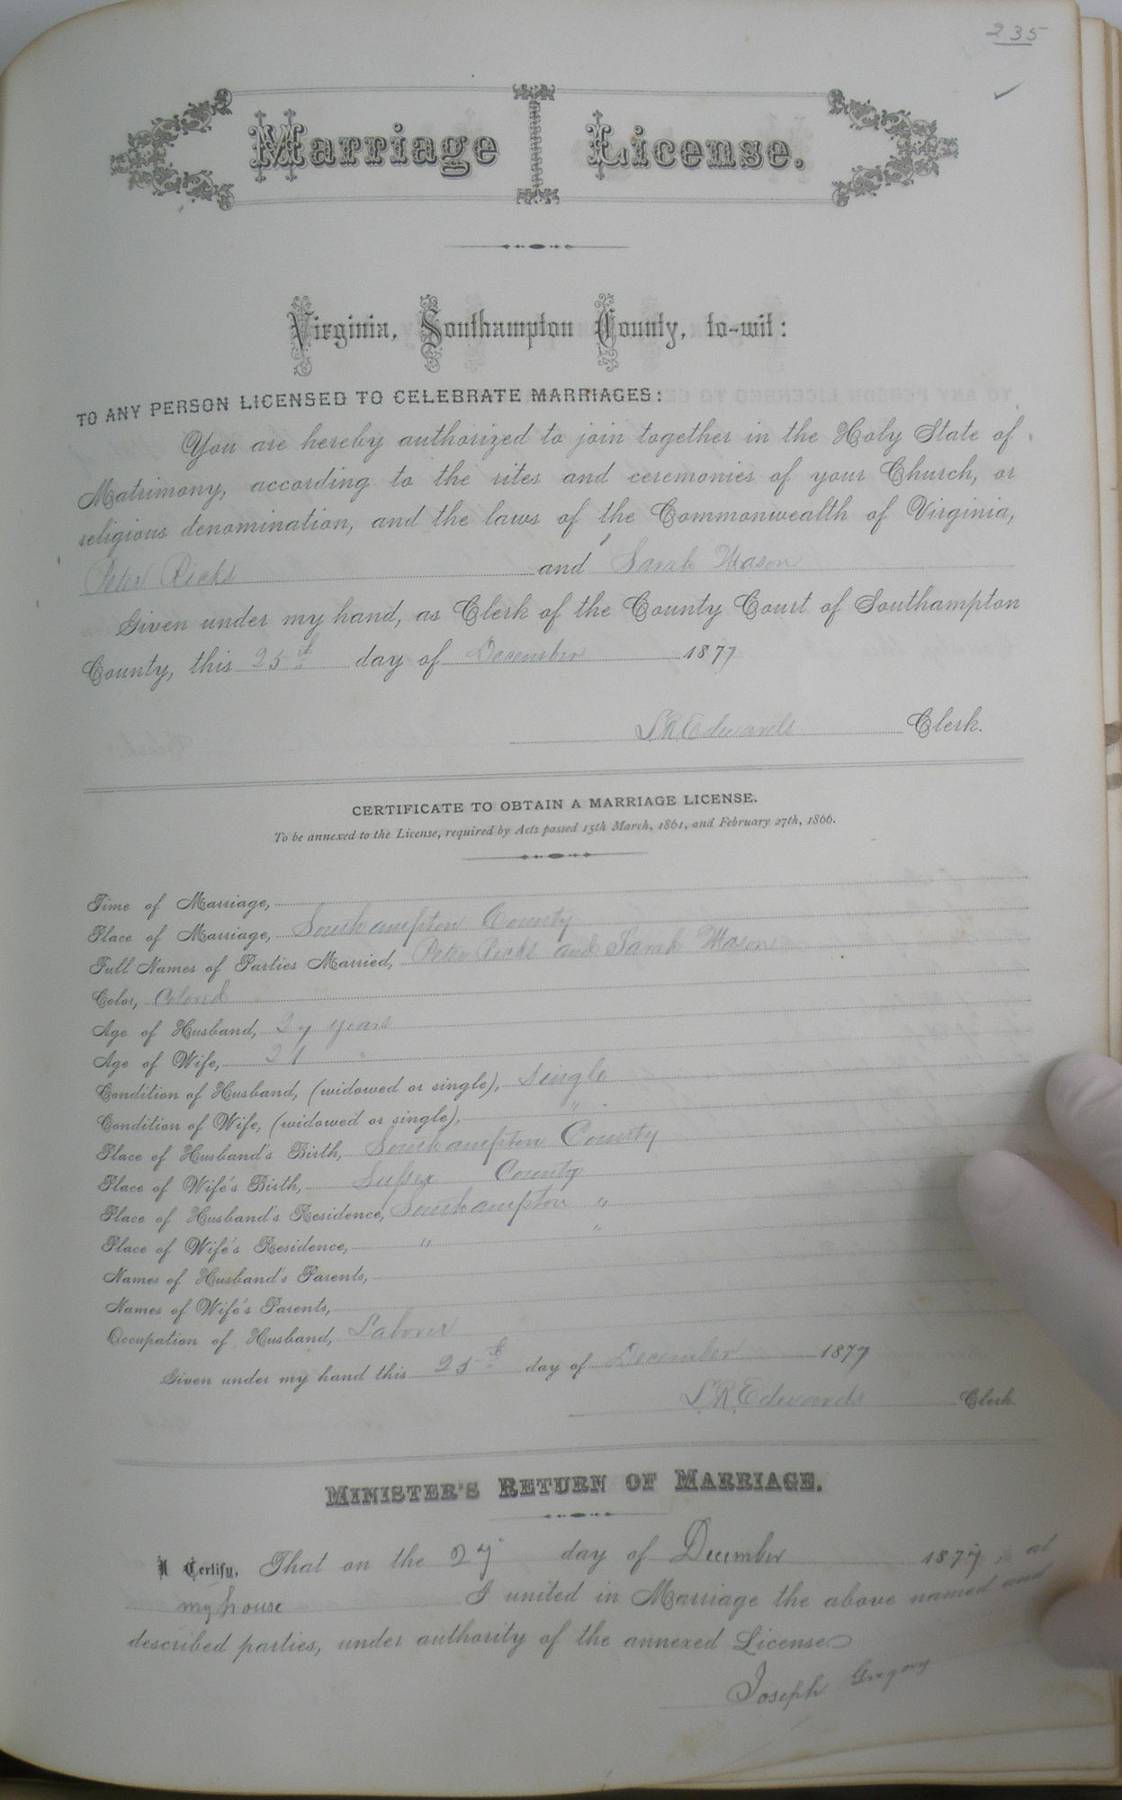 235
Marriage License.
Virginia, Southampton County, to-wit:
TO ANY PERSON LICENSED TO CELEBRATE MARRIAGES:
You are hereby authorized to join together in the Holy State of
Matrimony, according to the rites and ceremonies of your Church, or
religious denomination, and the laws of the Commonwealth of Virginia,
Peter Ricks and Sarah Mason
Given under my hand, as Clerk of the County Court of Southampton
County, this 25th day of December 1877
L.R. Edwards Clerk.
CERTIFICATE TO OBTAIN A MARRIAGE LICENSE.
To be annexed to the License, required by Acts passed 15th March, 1861, and February 27th, 1866.
Time of Marriage,
Place of Marriage, Southampton County
Full Names of Parties Married, Peter Ricks and Sarah Mason
Color, Colored
Age of Husband, 27 years
Age of Wife, 21 "
Condition of Husband, (widowed or single), Single
Condition of Wife, (widowed or single), "
Place of Husband's Birth, Southampton County
Place of Wife's Birth, Sussex County
Place of Husband's Residence, Southampton "
Place of Wife's Residence, " "
Names of Husband's Parents,
Names of Wife's Parents,
Occupation of Husband, Laborer
Given under my hand this 25th day of December 1877
L.R. Edwards Clerk.
MINISTER'S RETURN OF MARRIAGE.
I Certify, That on the 27 day of December 1877, at
my house I united in Marriage the above named and
described parties, under authority of the annexed License
Joseph Gregory